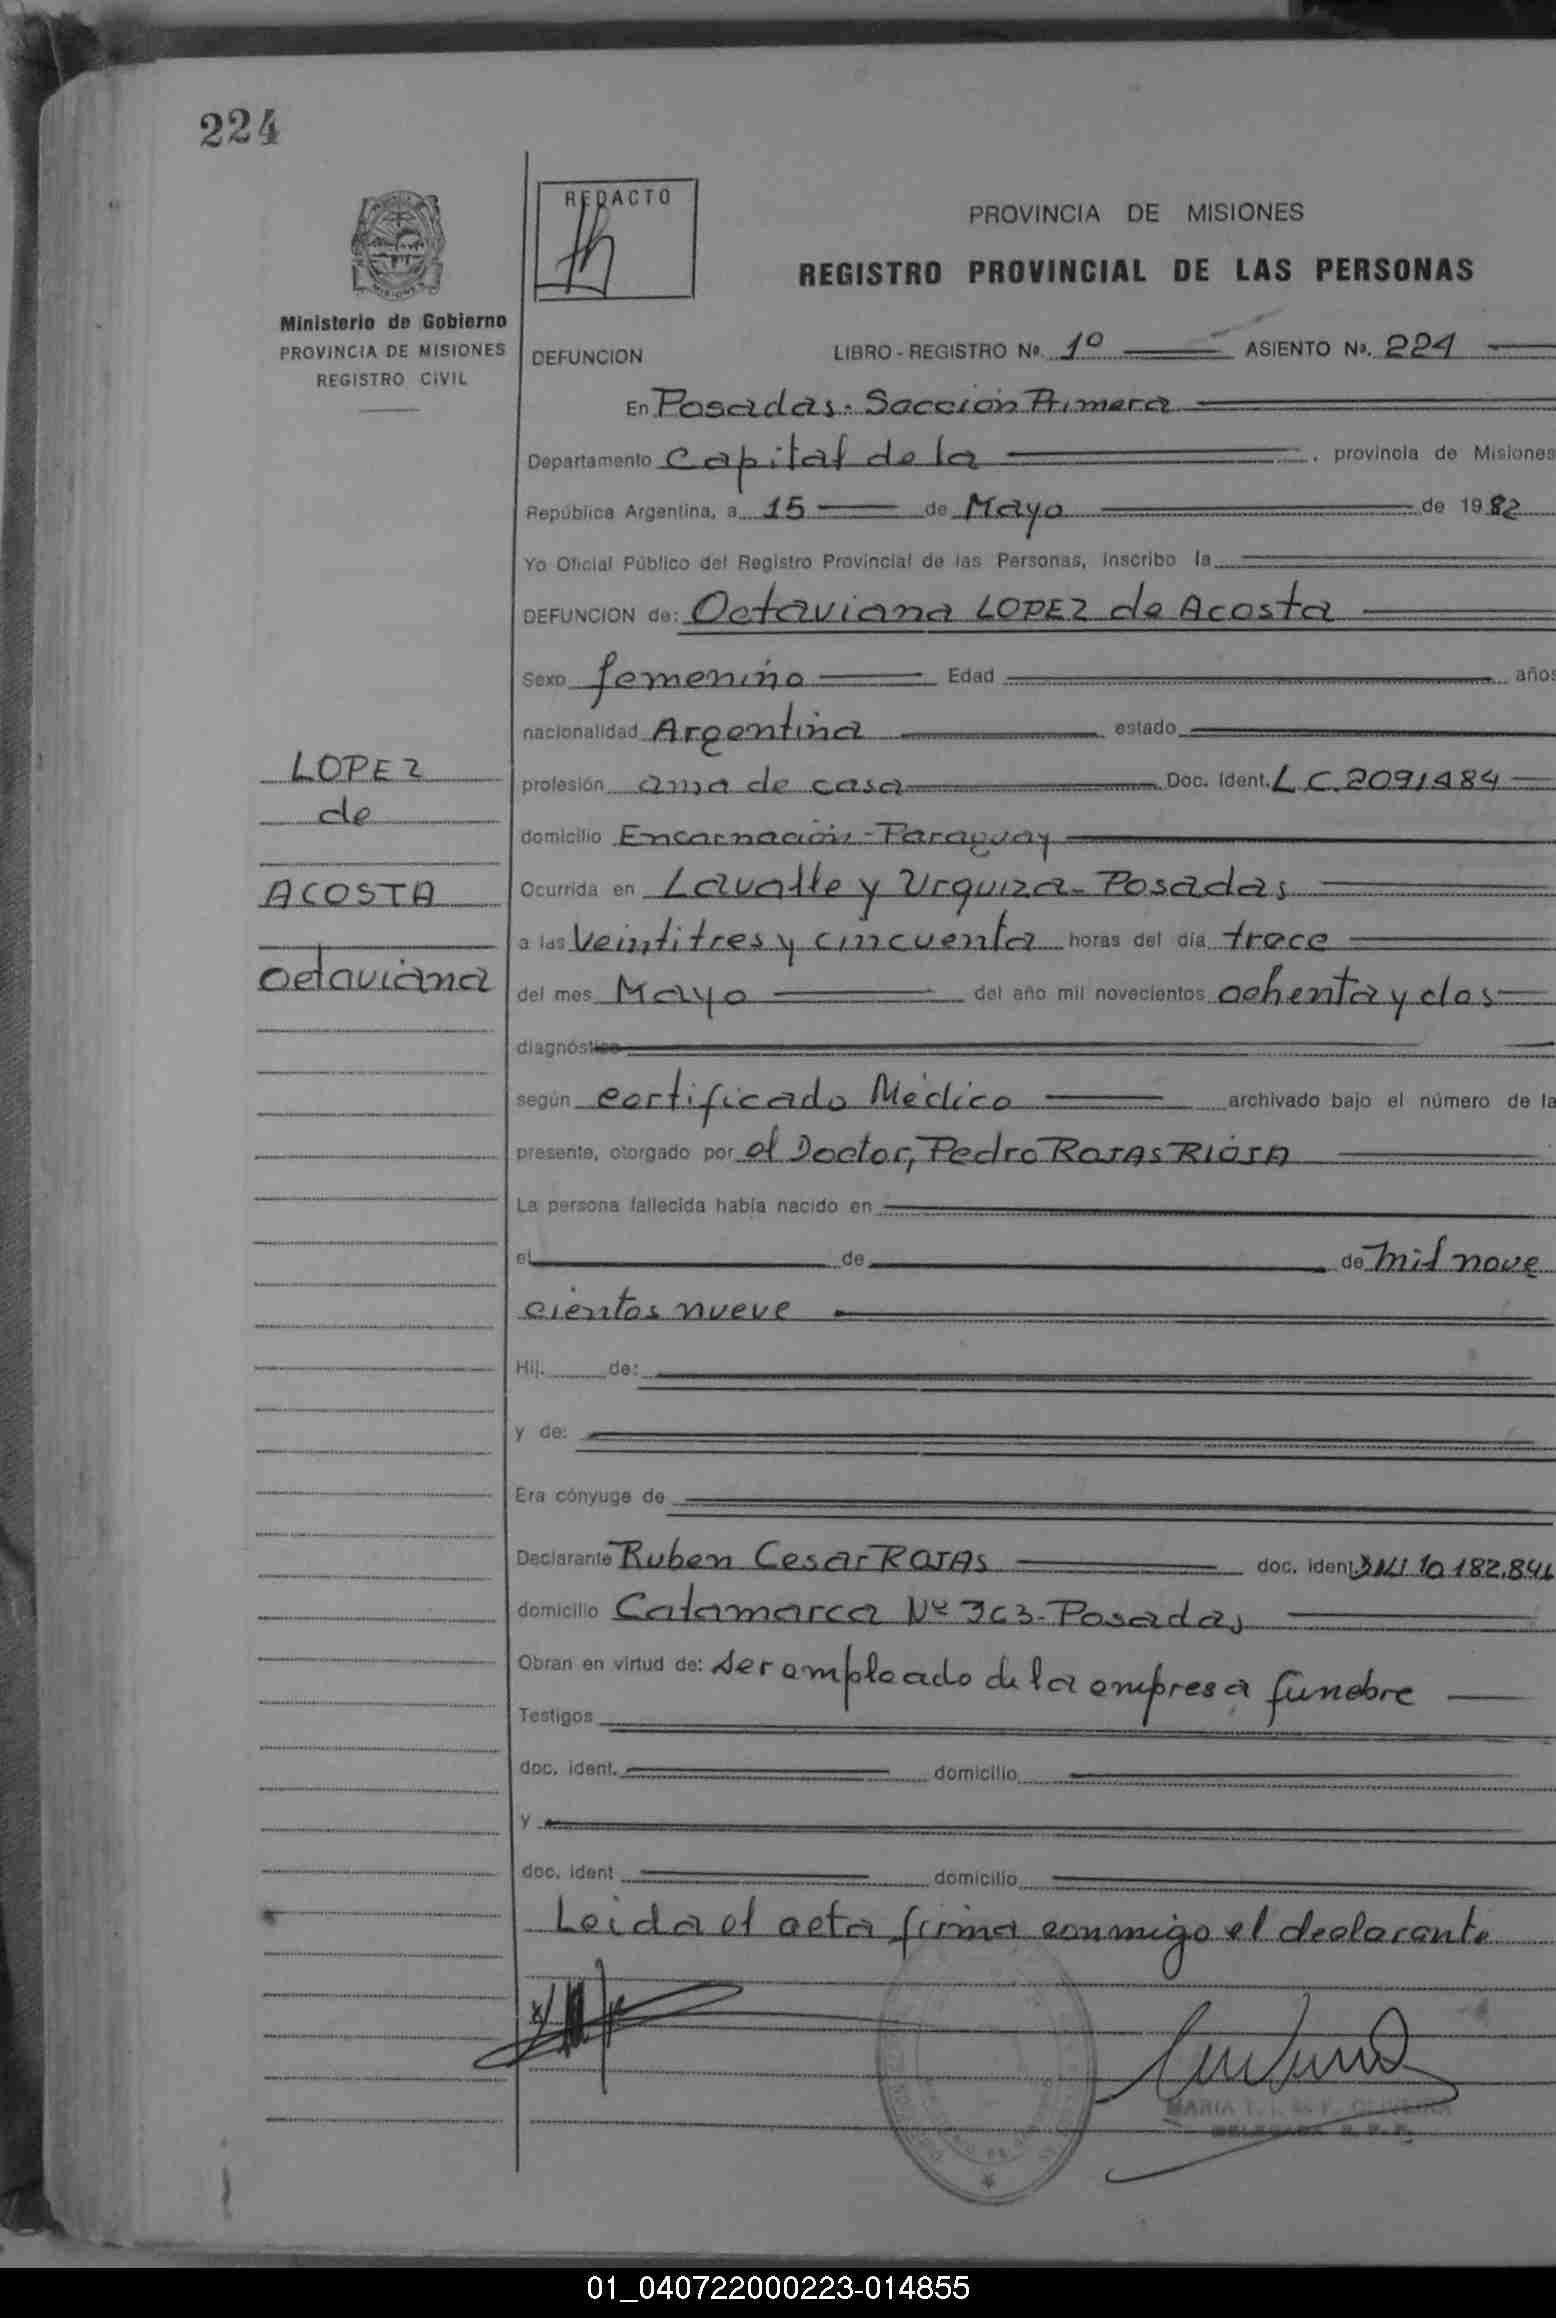 224
REDACTO
PROVINCIA DE MISIONES
REGISTRO PROVINCIAL DE LAS PERSONAS
Ministerio de Gobierno
PROVINCIA DE MISIONES
REGISTRO CIVIL
DEFUNCION LIBRO - REGISTRO Nº. 1º ASIENTO Nº. 224
En Posadas. Sección Primera
Departamento Capital de la , provincia de Misiones
República Argentina, a 15 de Mayo de 1982
Yo Oficial Público del Registro Provincial de las Personas, inscribo la
DEFUNCION de: Octaviana LOPEZ de Acosta
Sexo femenino Edad años
nacionalidad Argentina estado
profesión ama de casa Doc. Ident. L.C. 2091484
domicilio Encarnación - Paraguay
Ocurrida en Lavalle y Urquiza - Posadas
a las Veintitres y cincuenta horas del día trece
del mes Mayo del año mil novecientos ochenta y dos
diagnóstico
según certificado Médico archivado bajo el número de la
presente, otorgado por el Doctor, Pedro ROJAS RIOJA
La persona fallecida había nacido en
el de de mil nove
cientos nueve
Hij. de:
y de:
Era cónyuge de
Declarante Ruben Cesar ROJAS doc. ident. DNI 10.182.841
domicilio Catamarca Nº 363 - Posadas
Obran en virtud de: ser empleado de la empresa funebre
Testigos
doc. ident. domicilio
y
doc. ident domicilio
Leida el acta firma conmigo el declarante
LOPEZ
de
ACOSTA
Octaviana
MARIA T. I. de F. OLIVEIRA
DELEGADA R. P. P.
01_040722000223-014855